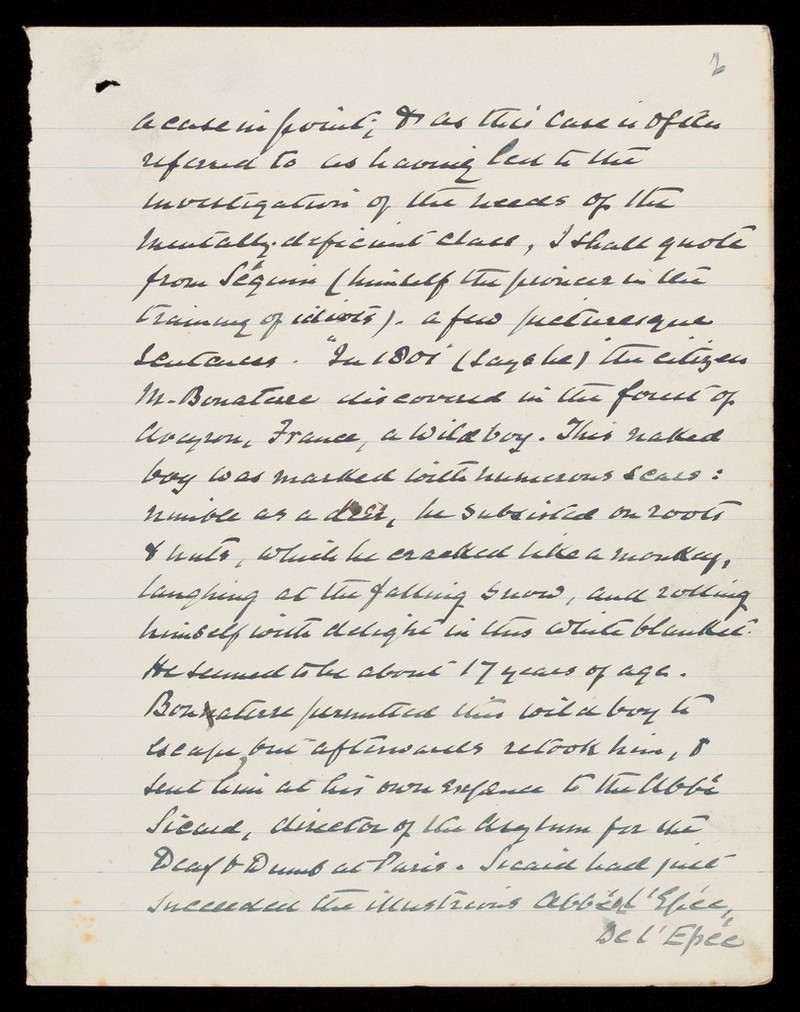 2
a case in point; & as this case is often
referred to as having led to the
investigation of the needs of the
mentally-deficient class, I shall quote
from Séguin (himself the pioneer in the
training of idiots). a few picturesque
sentences. "In 1801 (says he) the citizen
M. Bonaterre discovered in the forest of
Avayron, France, a wild boy. This naked
boy was marked with numerous scars:
nimble as a deer, he subsisted on roots
& nuts, which he cracked like a monkey,
laughing at the falling snow, and rolling
himself with delight in this white blanket.
He seemed to be about 17 years of age.
Bonnaterre permitted this wild boy to
escape, but afterwards retook him, &
sent him at his own expence to the Abbé
Sicard, director of the Asylum for the
Deaf & Dumb at Paris. Sicard had just
succeeded the illustrious Abbé d'Epée,
De l'Epée